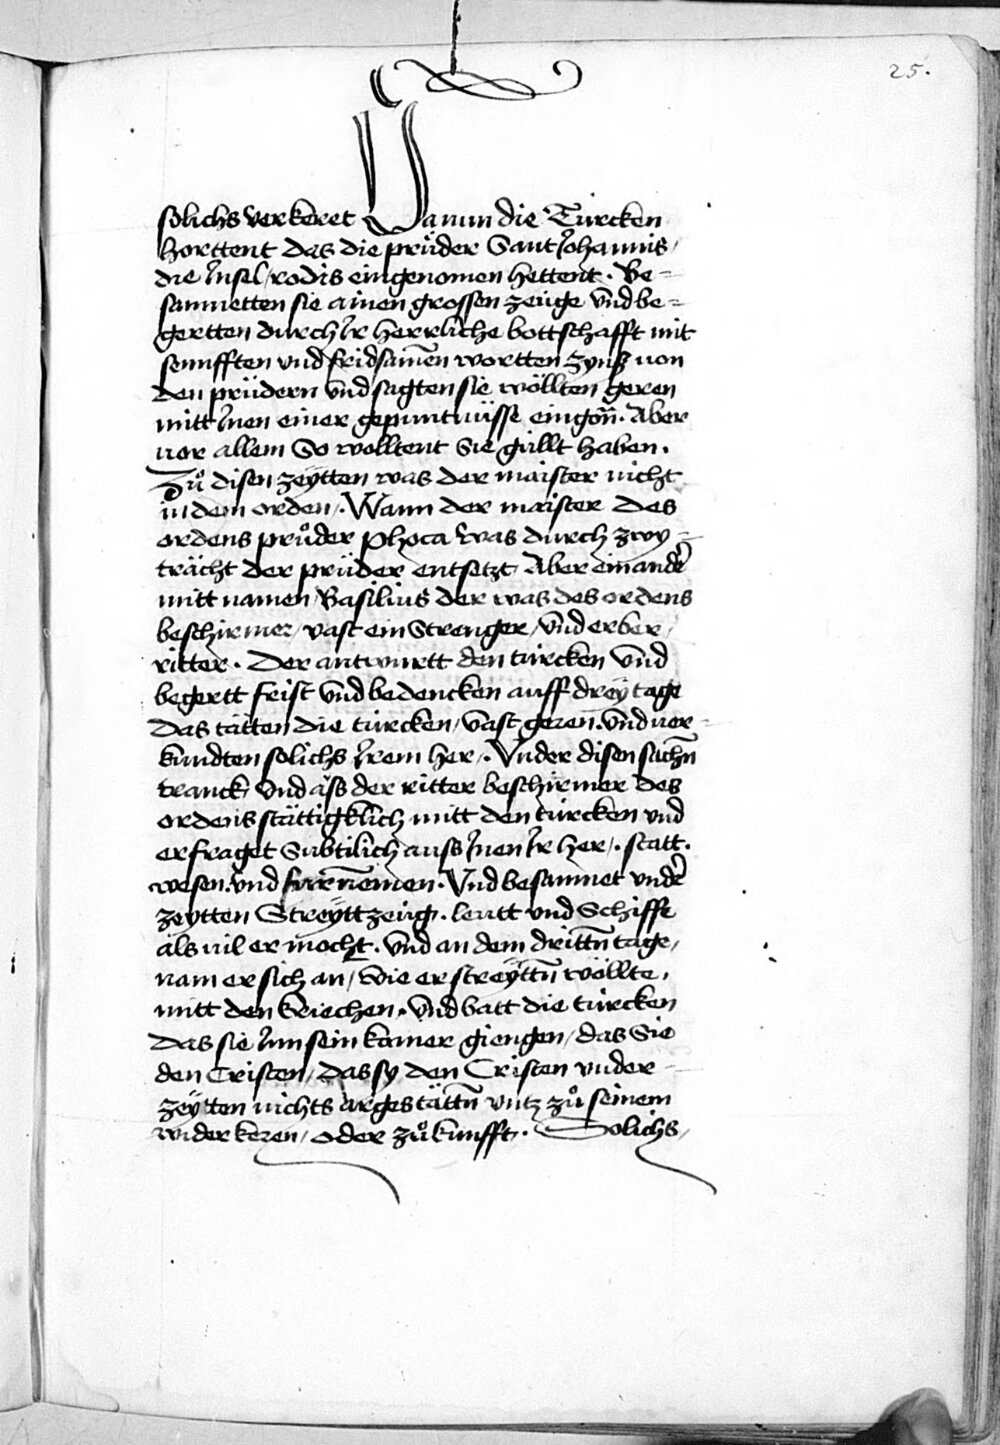 25.
solichs verkeret Wann die Türcken
horttent das die prüder Sant Johannis /
die Insel / rodis eingenomen hettent · Be=
samnetten sie ainen grossen zeüge vnd be=
gertten durch Ir herrliche bottschafft mit
sennfften vnd fridsamen wortten zynß von
den prüdern vnd sagten sie wöllten geren
mitt Inen einer gepuntnüsse eingon̄ · Aber
vor allem So wolltent Sie güllt haben ·
Zuͦ disen zeytten was der maister nicht
in dem orden / · Wann der maister des
ordens pruͦder phoca was durch zwy=
trächt der prüder entsetzt Aber ein andr̄
mitt namen Basilius der was des ordens
beschirmer / vast ein Strenger / vnd erber /
ritter · Der antwurtt den türcken vnd
begertt frist vnd bedencken auff drey tage
das tätten die türcken / vast geren · vnd ver=
kundten solichs Irem her / · Vnder disen sachn̄
tranck vnd äss der ritter beschirmer des
ordens stättigklich mitt den türcken vnd
erfraget Subtilich auss Inen Ir her / · statt ·
wesen · vnd furnemen · Vnd besamnet vndr̄
zeytten Streytt zeüg · leutt vnd Schiffe
als vil er mocht · vnd an dem drittn̄ tage /
nam er sich an / wie er streyttn̄ wöllte ·
mitt den kriechen · vnd batt die türcken
das sie Inn sein kamer giengen / das Sie
den Cristen / das sy den Cristen vnder=
zeytten nichts arges tättn̄ vntz zuͦ seinem
widerkeren / oder zuͦkunfft · Solichs /